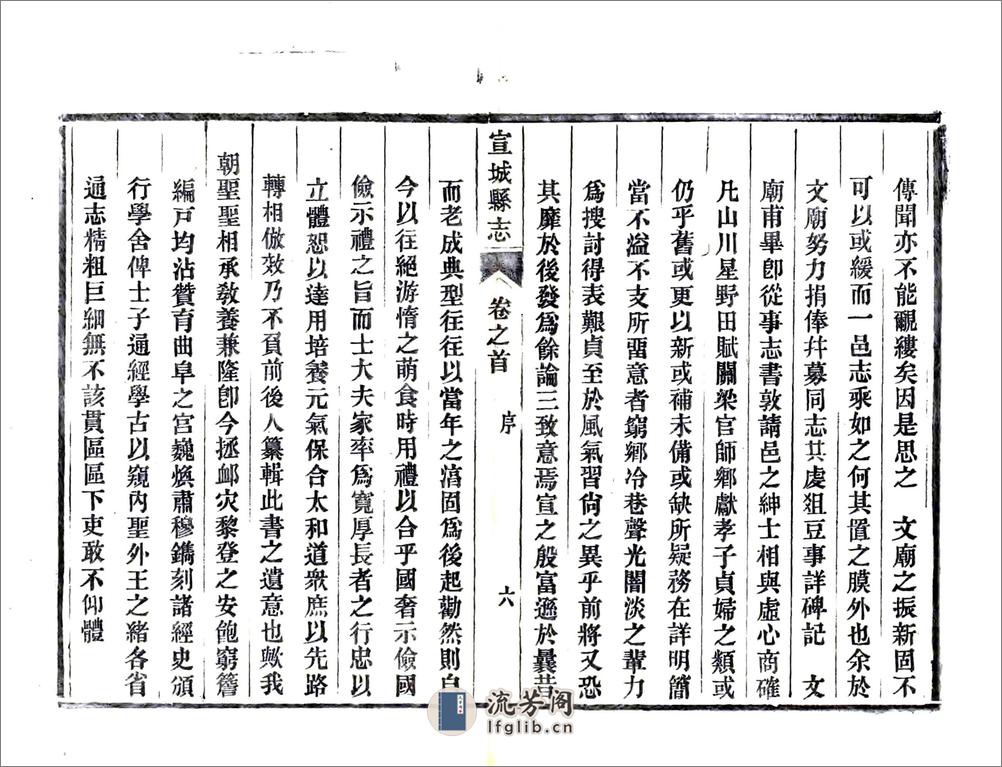 傳聞亦不能覼縷矣因是思之 文廟之振新固不
可以或緩而一邑志乘如之何其置之膜外也余於
文廟努力捐俸幷募同志其處俎豆事詳碑記 文
廟甫畢卽從事志書敦請邑之紳士相與虛心商確
凡山川星野田賦關梁官師鄕獻孝子貞婦之類或
仍乎舊或更以新或補未備或缺所疑務在詳明簡
當不溢不支所畱意者窮鄕冷巷聲光闇淡之輩力
爲搜討得表艱貞至於風氣習尙之異乎前將又恐
其靡於後發爲餘論三致意焉宣之殷富遜於曩昔
宣城縣志 卷之首 序 六
而老成典型往往以當年之湻固爲後起勸然則自
今以往絕游惰之萌食時用禮以合乎國奢示儉國
儉示禮之旨而士大夫家率爲寬厚長者之行忠以
立體恕以達用培養元氣保合太和道眾庶以先路
轉相倣效乃不負前後人纂輯此書之遺意也歟我
朝聖聖相承敎養兼隆卽今拯卹灾黎登之安飽窮簷
編戸均沾贊育曲阜之宫巍煥肅穆鐫刻諸經史頒
行學舍俾士子通經學古以窺內聖外王之緒各省
通志精粗巨細無不該貫區區下吏敢不仰體
流芳阁
lfglib.cn